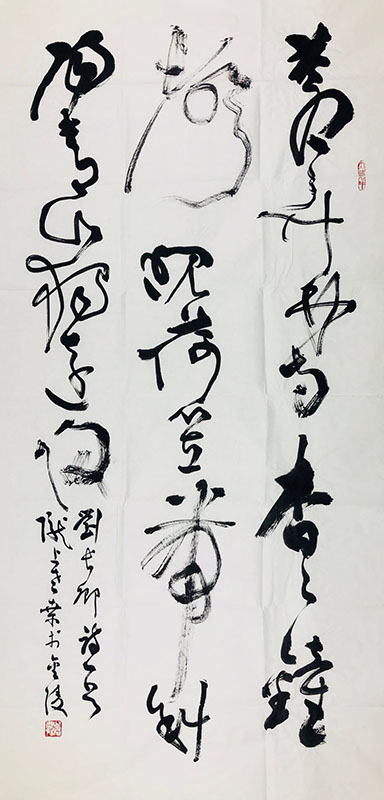 蒼蒼竹林寺杳杳鐘
聲晚荷笠帶斜
陽青山獨
劉長卿詩一首
隴上業於金陵